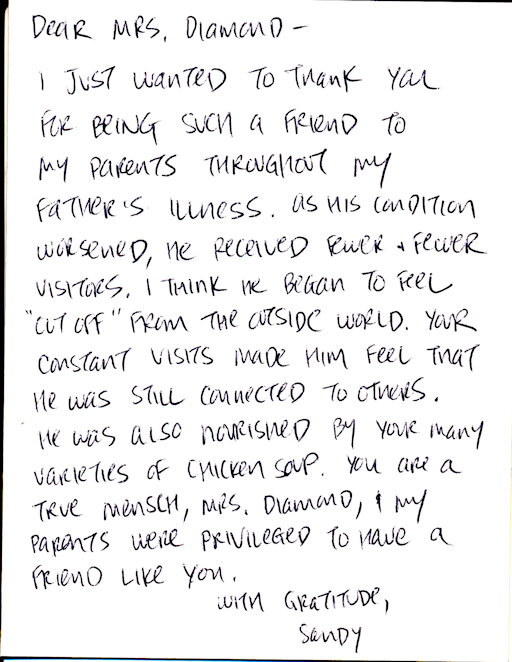 Dear Mrs. Diamond -
I just wanted to thank you
for being such a friend to
my parents throughout my
father's illness. As his condition
worsened, he received fewer & fewer
visitors. I think he began to feel
"cut off" from the outside world. Your
constant visits made him feel that
he was still connected to others.
He was also nourished by your many
varieties of chicken soup. You are a
true mensch, Mrs. Diamond, & my
parents were privileged to have a
friend like you.
With gratitude,
Sandy